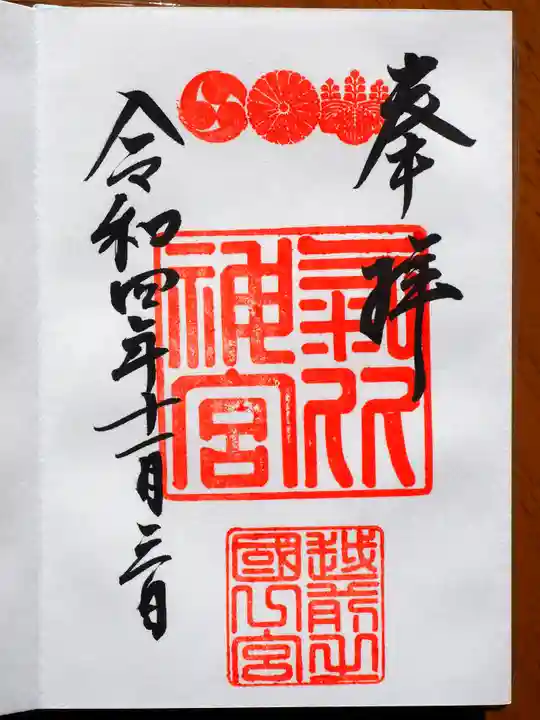 奉拝
氣比
神宮
越前之
國一宮
令和四年十一月三日